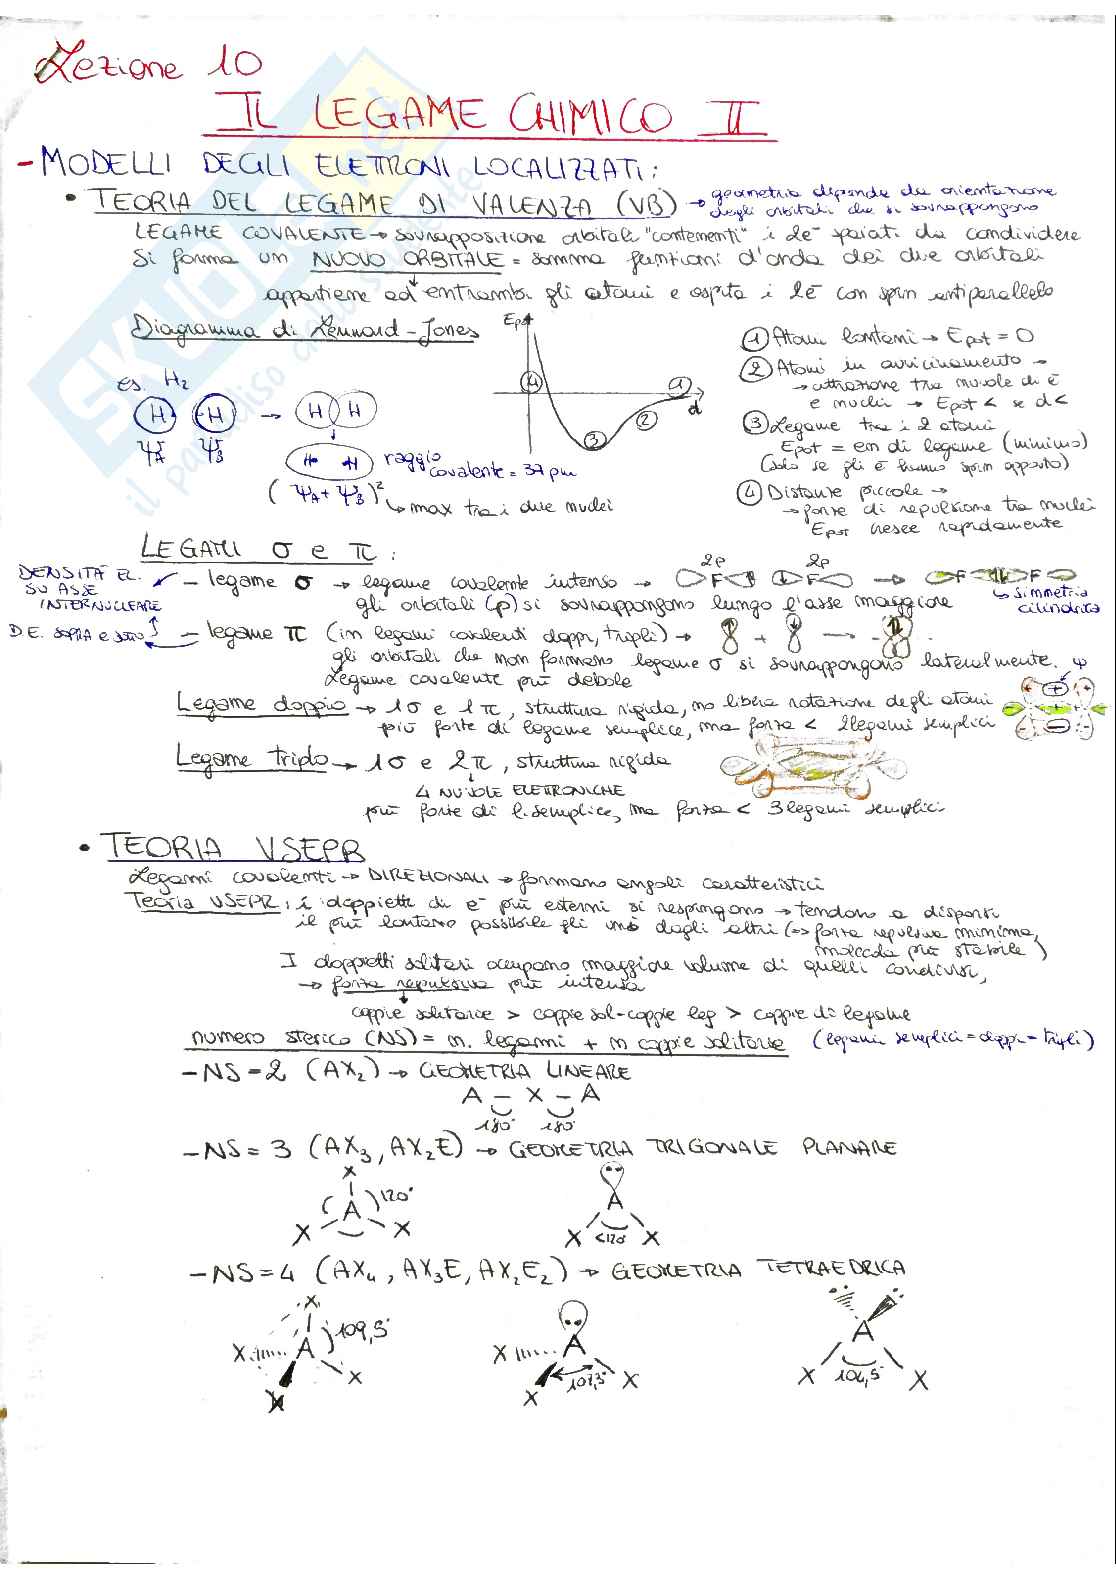 Lezione 10
IL LEGAME CHIMICO II
- MODELLI DEGLI ELETTRONI LOCALIZZATI:
• TEORIA DEL LEGAME DI VALENZA (VB) → geometria dipende da orientazione
degli orbitali che si sovrappongono
LEGAME COVALENTE → sovrapposizione orbitali "contenenti" i 2e⁻ spaiati da condividere
Si forma un NUOVO ORBITALE = somma funzioni d'onda dei due orbitali
appartiene ad entrambi gli atomi e ospita i 2e⁻ con spin antiparallelo
Diagramma di Lennard-Jones
Epot
d
1
2
3
4
es. H₂
H H → H H
ΨA ΨB
H H
raggio
covalente = 37 pm
(ΨA + ΨB)²
↳ max tra i due nuclei
① Atomi lontani → Epot = 0
② Atomi in avvicinamento →
→ attrazione tra nuvole di e⁻
e nuclei → Epot < se d<
③ Legame tra i 2 atomi
Epot = en di legame (minimo)
(solo se gli e⁻ hanno spin opposto)
④ Distanze piccole →
→ forze di repulsione tra nuclei
Epot cresce rapidamente
LEGAMI σ e π:
DENSITÀ EL.
SU ASSE
INTERNUCLEARE
- legame σ → legame covalente intenso →
2p 2p
F F → F F
↳ simmetria
cilindrica
gli orbitali (p) si sovrappongono lungo l'asse maggiore
D.E. SOPRA e SOTTO
- legame π (in legami covalenti doppi, tripli) →
+ →
gli orbitali che non formano legame σ si sovrappongono lateralmente.
Legame covalente più debole
Legame doppio → 1σ e 1π, struttura rigida, no libera rotazione degli atomi
più forte di legame semplice, ma forza < 2 legami semplici
Legame triplo → 1σ e 2π, struttura rigida
4 NUVOLE ELETTRONICHE
più forte di l. semplice, ma forza < 3 legami semplici
• TEORIA VSEPR
Legami covalenti → DIREZIONALI → formano angoli caratteristici
Teoria VSEPR: i doppietti di e⁻ più esterni si respingono → tendono a disporsi
il più lontano possibile gli uni dagli altri (→ forza repulsiva minima,
molecola più stabile)
I doppietti solitari occupano maggiore volume di quelli condivisi,
→ forza repulsiva più intensa
coppie solitarie > coppie sol-coppie leg > coppie di legame
numero sterico (NS) = n. legami + n coppie solitarie (legami semplici = doppi = tripli)
- NS = 2 (AX₂) → GEOMETRIA LINEARE
A — X — A
180° 180°
- NS = 3 (AX₃, AX₂E) → GEOMETRIA TRIGONALE PLANARE
X
A
120°
X X
A
X <120° X
- NS = 4 (AX₄, AX₃E, AX₂E₂) → GEOMETRIA TETRAEDRICA
X
X A 109,5°
X X
X A
X 107,3° X
A
X 104,5° X